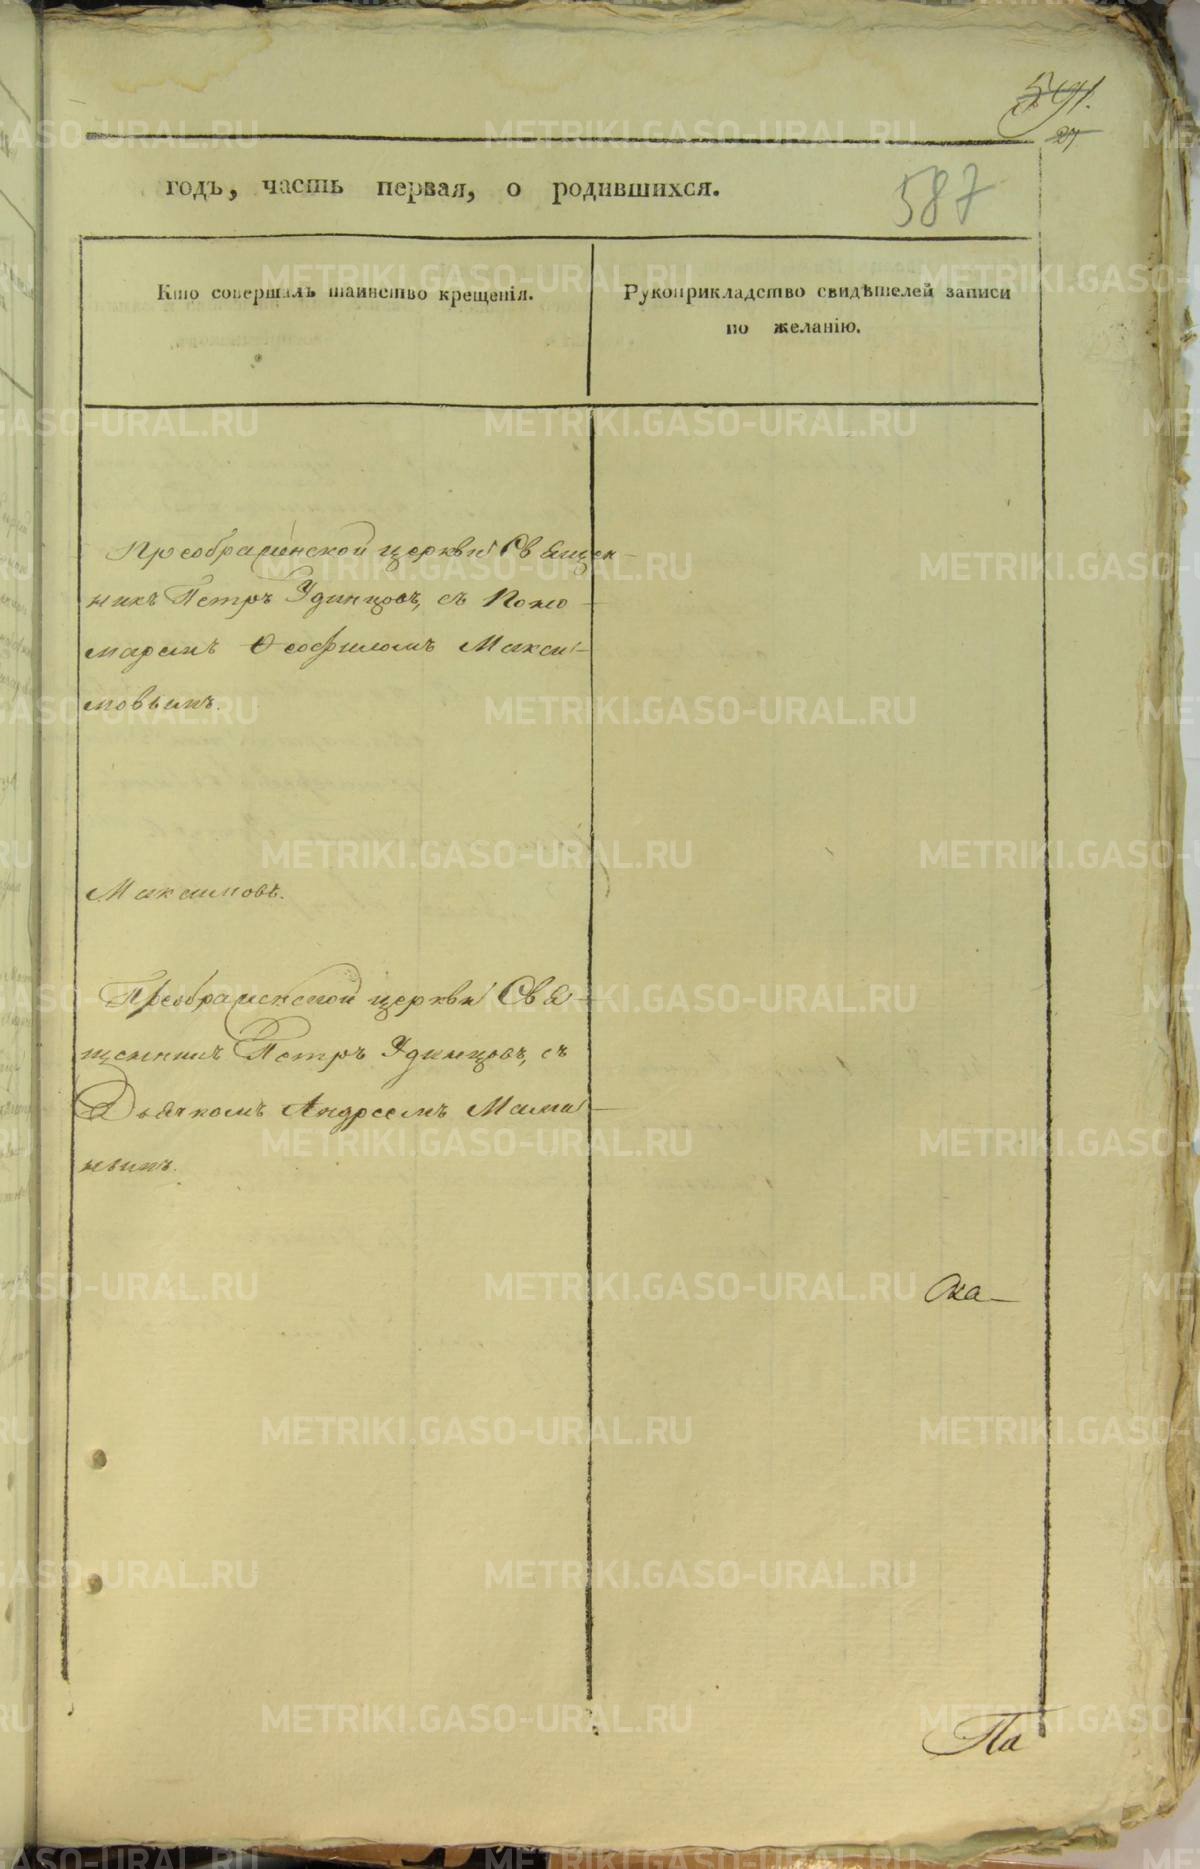 591.
27
годъ, часть первая, о родившихся.
587
Кто совершалъ таинство крещенія.
Рукоприкладство свидѣтелей записи
по желанію.
Преображенской церкви Священ-
никъ Петръ Удинцовъ, съ Поно-
маремъ Ѳеофиломъ Макси-
мовымъ.
Максимовъ.
Преображенской церкви Свя-
щенникъ Петръ Удинцовъ, съ
Дьячкомъ Андреемъ Мами-
нымъ.
Ока-
Па
METRIKI.GASO-URAL.RU